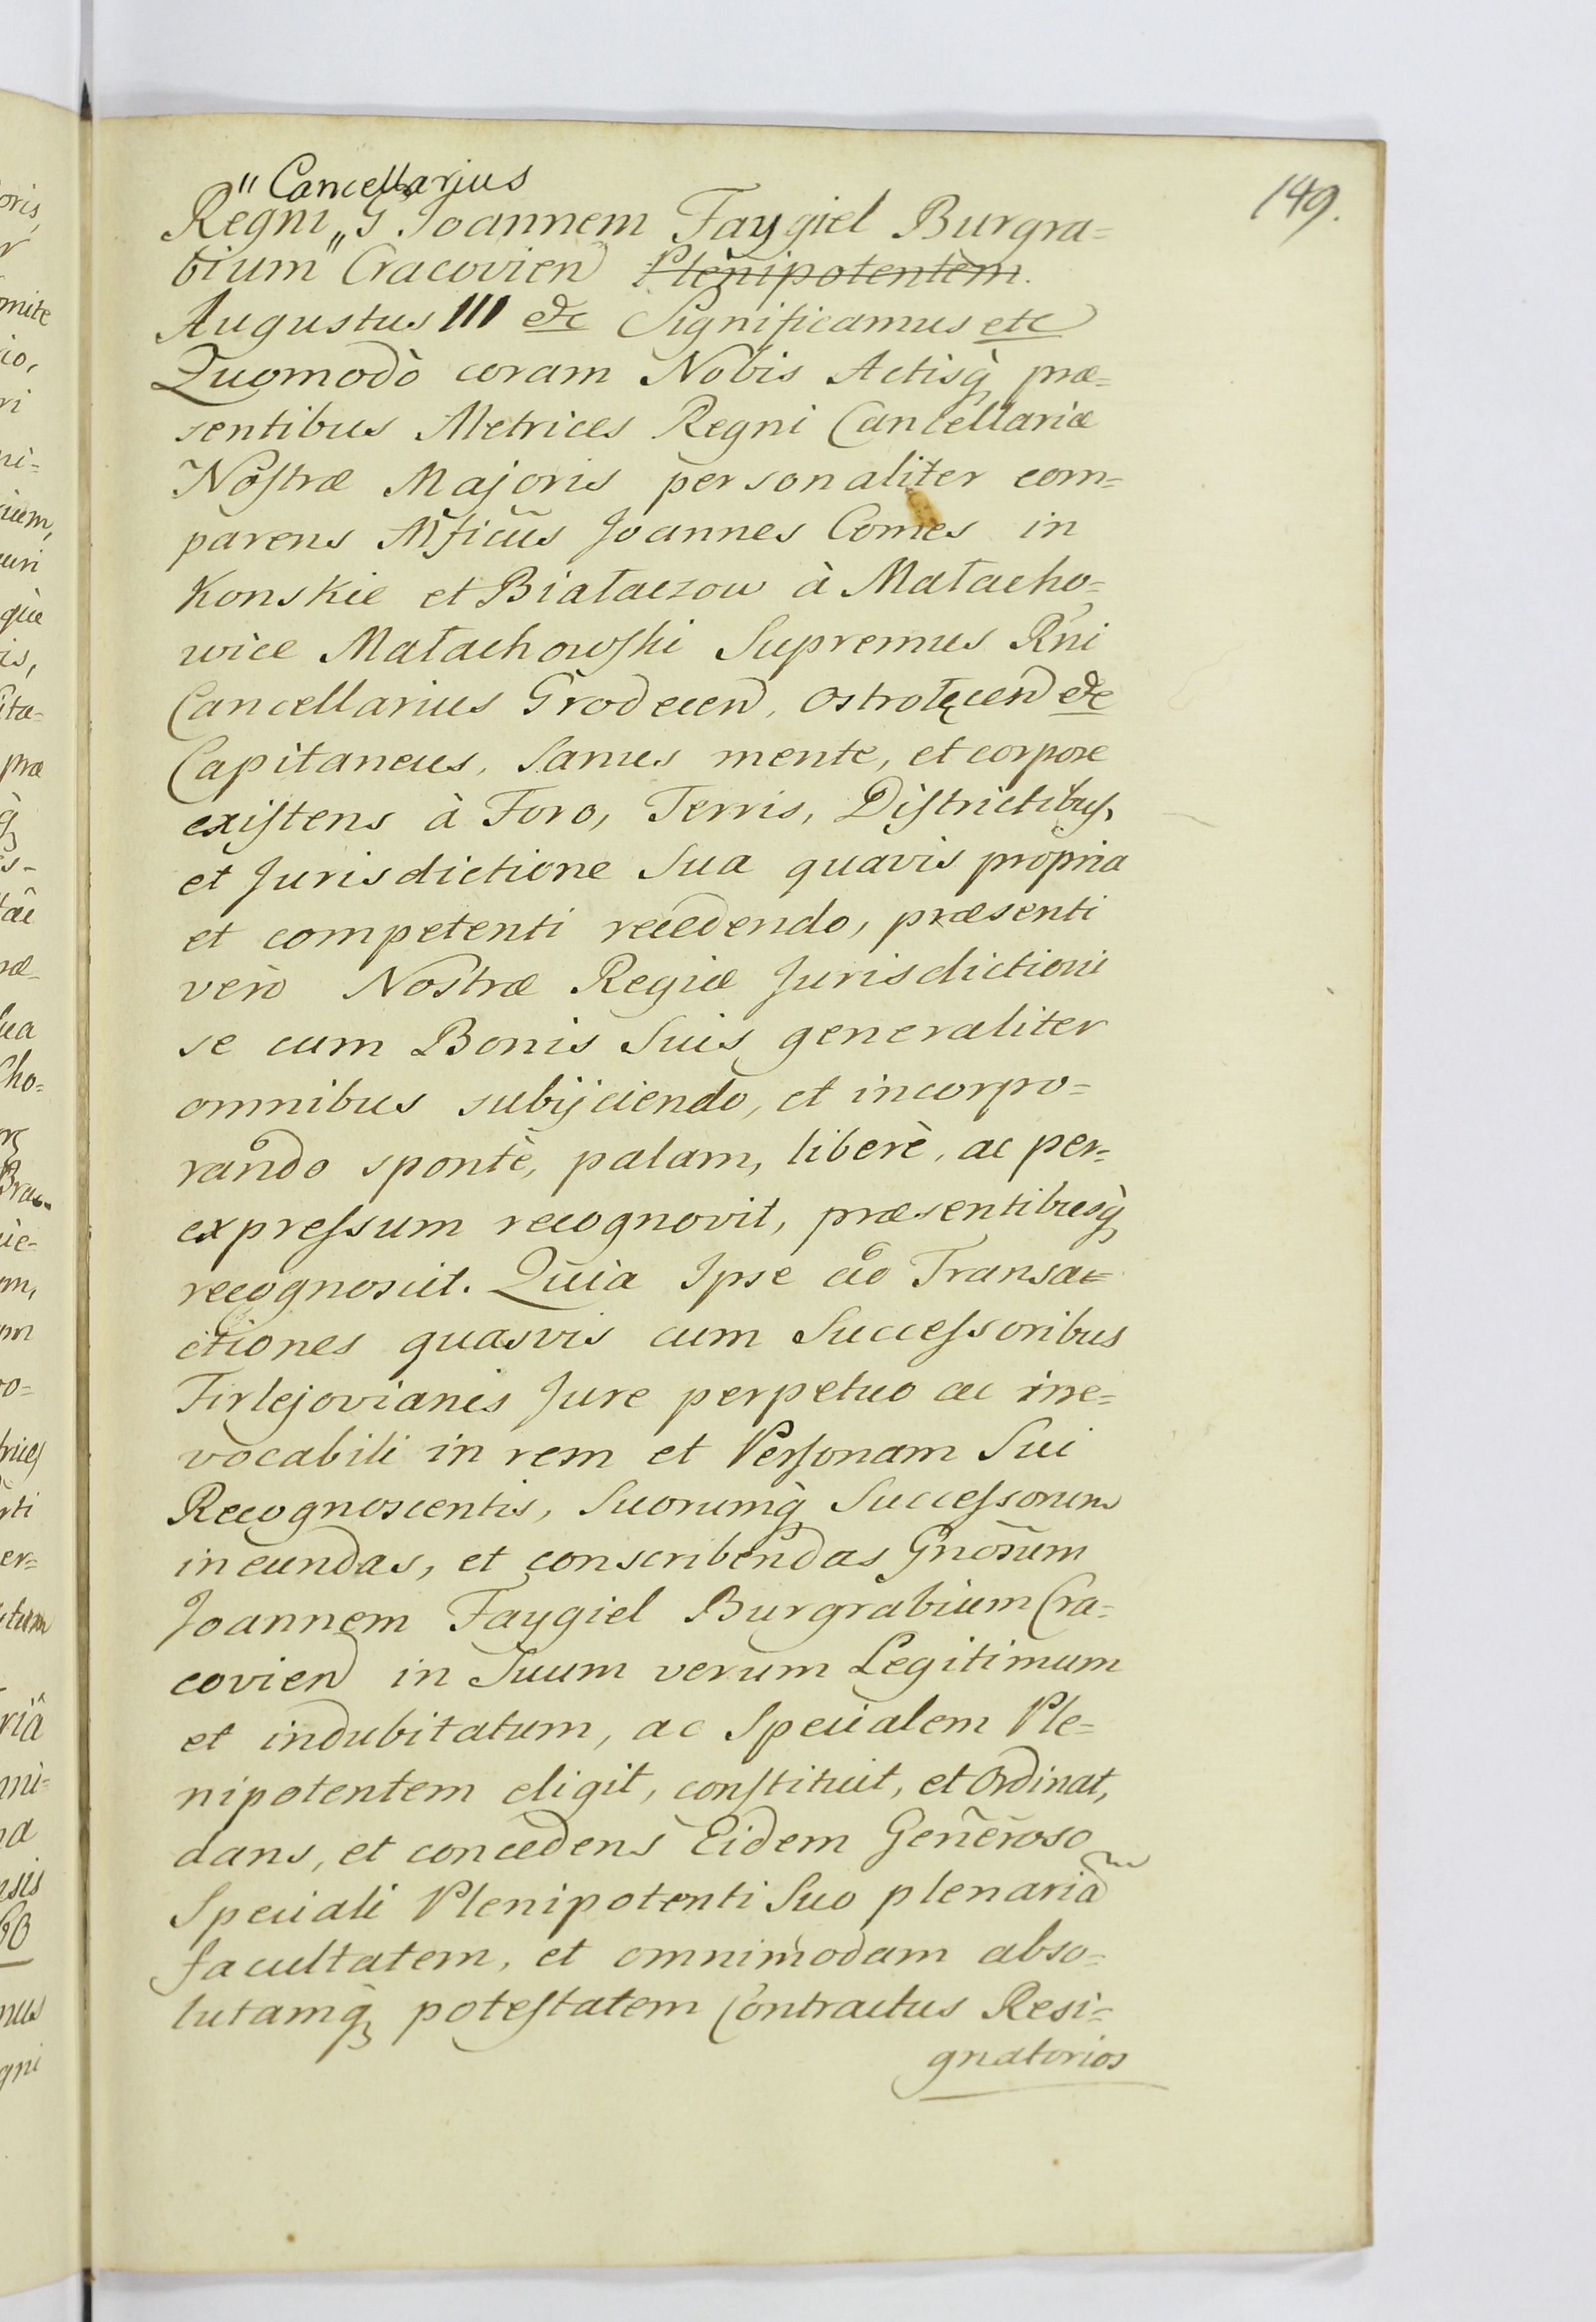 149.
" Cancellarius
Regni „ G Joannem Faygiel Burgra=
bium Cracovien Plenipotentem.
Augustus III etc Significamus etc
Quomodò coram Nobis Actisq̀ præ=
sentibus Metrices Regni Cancellariæ
Nostræ Majoris personaliter com=
parens Mficũs Joannes Comes in
Konskie et Białaczow à Małacho=
wice Małachowski Supremus Rni
Cancellarius Grodecen, Ostrołęcen etc
Capitaneus, Sanus mente, et corpore
existens à Foro, Terris, Districtibus,
et Jurisdictione Sua quavis propria
et competenti recedendo, præsenti
verò Nostræ Regiæ Jurisdictioni
se cum Bonis Suis generaliter
omnibus subijciendo, et incorpo=
rando spontè, palam, liberè, ac per=
expressum recognovit, præsentibusq̀
recognoscit. Quia Ipse ad Transa=
ctiones quasvis cum Successoribus
Firlejovianis Jure perpetuo ac irre=
vocabili in rem et Personam Sui
Recognoscentis, Suorumq̀ Successorum
ineundas, et conscribendas Gnõsum
Joannem Faygiel Burgrabium Cra=
covien in Suum verum Legitimum
et indubitatum, ac Specialem Ple=
nipotentem eligit, constituit, et Ordinat,
dans, et concedens Eidem Generoso
Speciali Plenipotenti Suo plenariã
facultatem, et omnimodam abso=
lutamq̀ potestatem Contractus Resi=
gnatorios